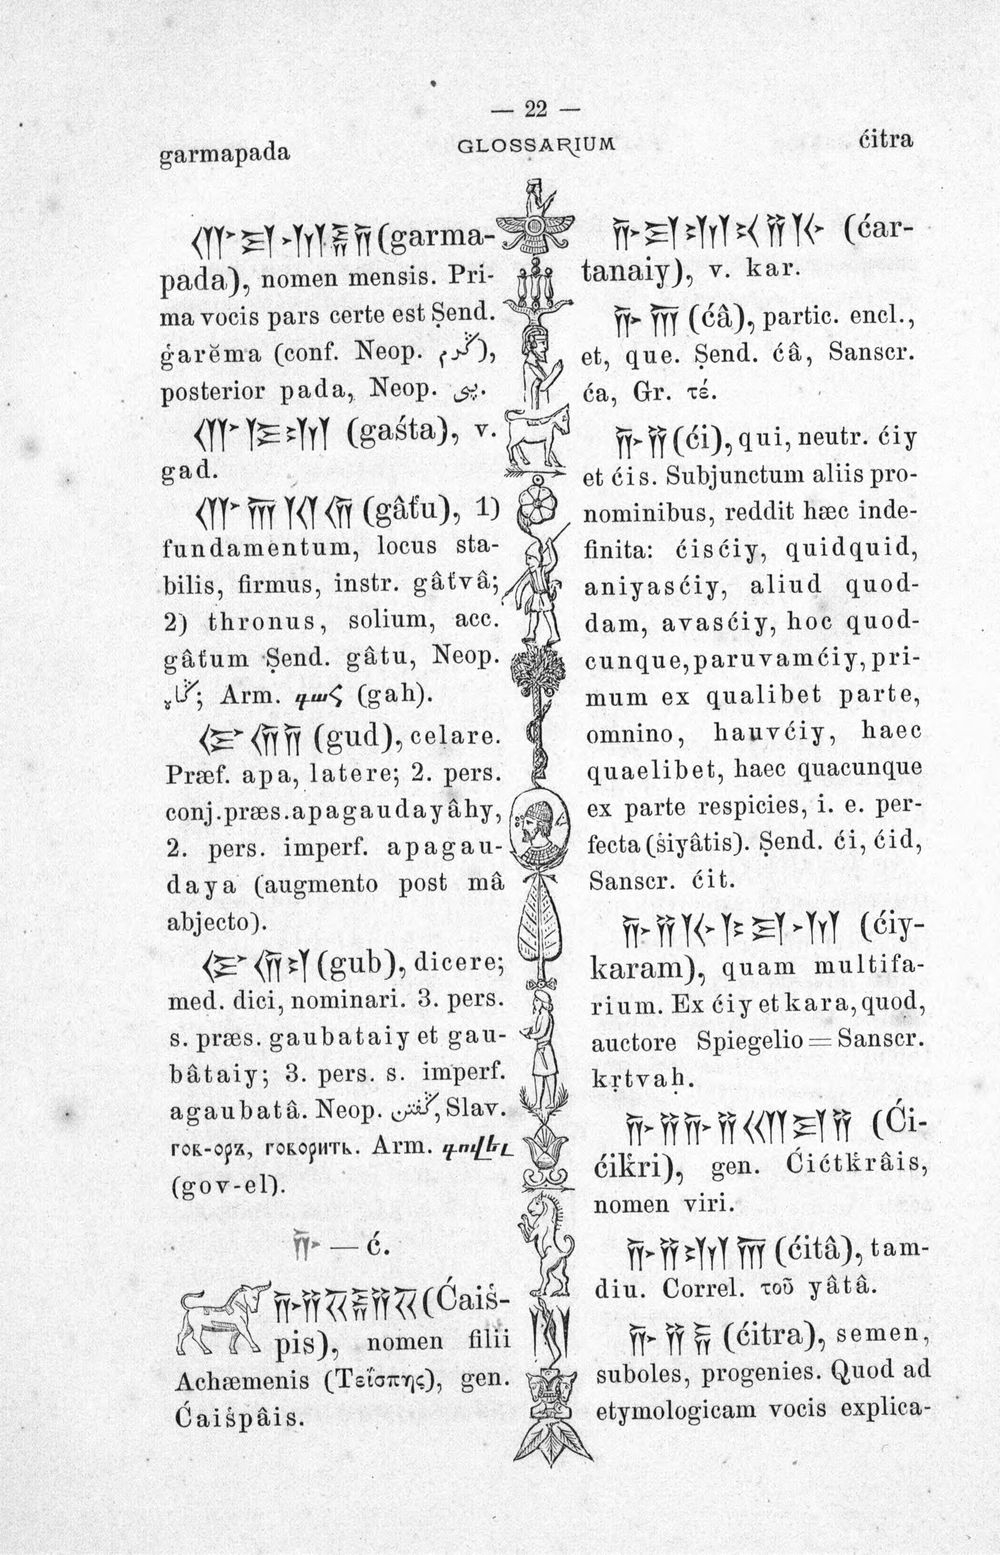 — 22 —
garmapada
GLOSSARIUM
ćitra
(garma-
pada), nomen mensis. Pri-
ma vocis pars certe est Ṣend.
ġarĕma (conf. Neop. گرم),
posterior pada, Neop. پی.
(gaśta), v.
gad.
(gâťu), 1)
fundamentum, locus sta-
bilis, firmus, instr. gâťvâ;
2) thronus, solium, acc.
gâťum Ṣend. gâtu, Neop.
گاه; Arm. գահ (gah).
(gud), celare.
Præf. apa, latere; 2. pers.
conj. præs. apagaudayâhy,
2. pers. imperf. apagau-
daya (augmento post mâ
abjecto).
(gub), dicere;
med. dici, nominari. 3. pers.
s. præs. gaubataiy et gau-
bâtaiy; 3. pers. s. imperf.
agaubatâ. Neop. گفتن, Slav.
гок-оръ, говорить. Arm. գովել
(gov-el).
— ć.
(Ćaiṡ-
pis), nomen filii
Achæmenis (Τεΐσπης), gen.
Ćaiṡpâis.
(ćar-
tanaiy), v. kar.
(ćâ), partic. encl.,
et, que. Ṣend. ćâ, Sanscr.
ća, Gr. τέ.
(ći), qui, neutr. ćiy
et ćis. Subjunctum aliis pro-
nominibus, reddit hæc inde-
finita: ćisćiy, quidquid,
aniyasćiy, aliud quod-
dam, avasćiy, hoc quod-
cunque, paruvamćiy, pri-
mum ex qualibet parte,
omnino, hauvćiy, haec
quaelibet, haec quacunque
ex parte respicies, i. e. per-
fecta (ṡiyâtis). Ṣend. ći, ćid,
Sanscr. ćit.
(ćiy-
karam), quam multifa-
rium. Ex ćiy et kara, quod,
auctore Spiegelio = Sanscr.
kṛtvaḥ.
(Ći-
ćikri), gen. Ćićtkrâis,
nomen viri.
(ćitâ), tam-
diu. Correl. τοῦ yâtâ.
(ćitra), semen,
suboles, progenies. Quod ad
etymologicam vocis explica-